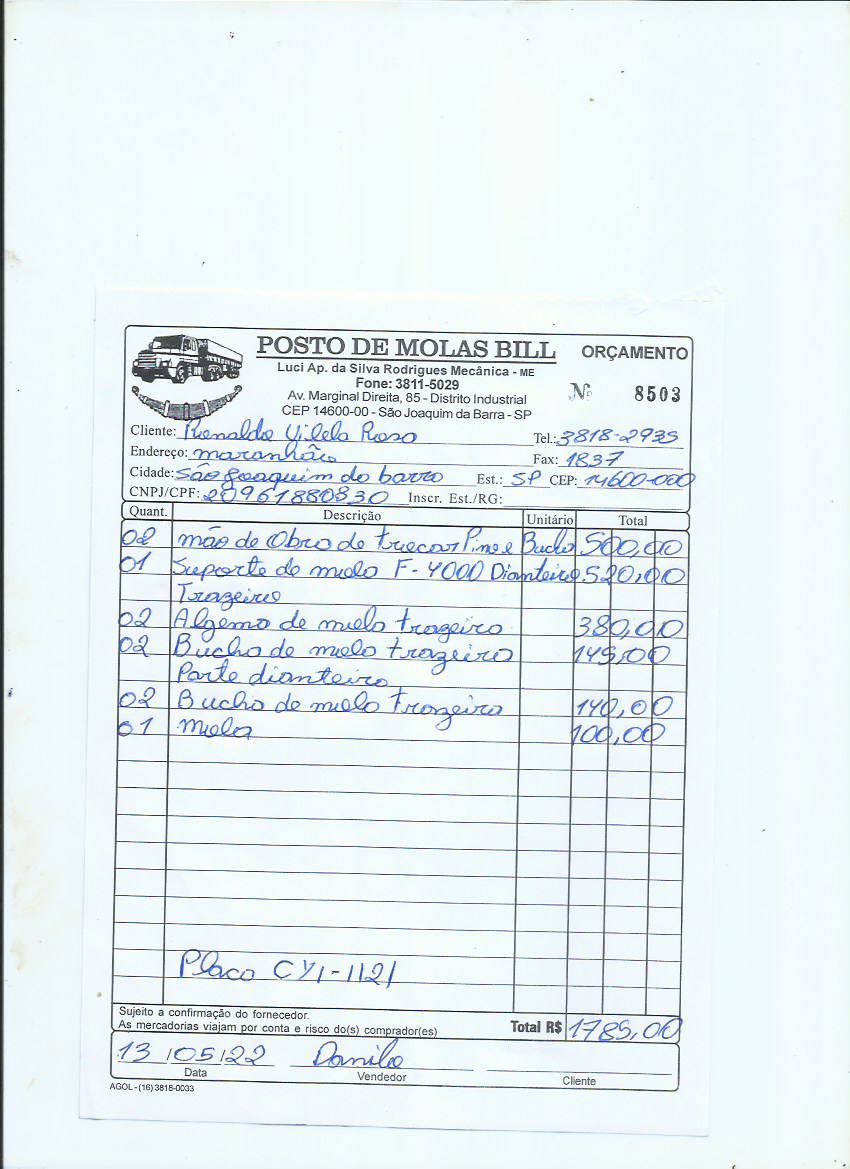 POSTO DE MOLAS BILL
ORÇAMENTO
Luci Ap. da Silva Rodrigues Mecânica - ME
Fone: 3811-5029
Nº 8503
Av. Marginal Direita, 85 - Distrito Industrial
CEP 14600-00 - São Joaquim da Barra - SP
Cliente: Renaldo Vilela Rosa Tel.: 3818-2935
Endereço: maranhão Fax: 1837
Cidade: São Joaquim da barra Est.: SP CEP: 14600-000
CNPJ/CPF: 20961880830 Inscr. Est./RG:
Quant. Descrição Unitário Total
02 mão de Obra de trocar Pino e Bucha 500,00
01 Suporte de mola F-4000 Dianteiro 520,00
Trazeiro
02 Algema de mola trazeiro 380,00
02 Bucha de mola trazeiro 145,00
Parte dianteira
02 Bucha de mola trazeiro 140,00
01 Mola 100,00
Placa CYI-1121
Sujeito a confirmação do fornecedor.
As mercadorias viajam por conta e risco do(s) comprador(es)
Total R$ 1785,00
13/05/22 Danilo
Data Vendedor Cliente
AGOL - (16) 3818-0033